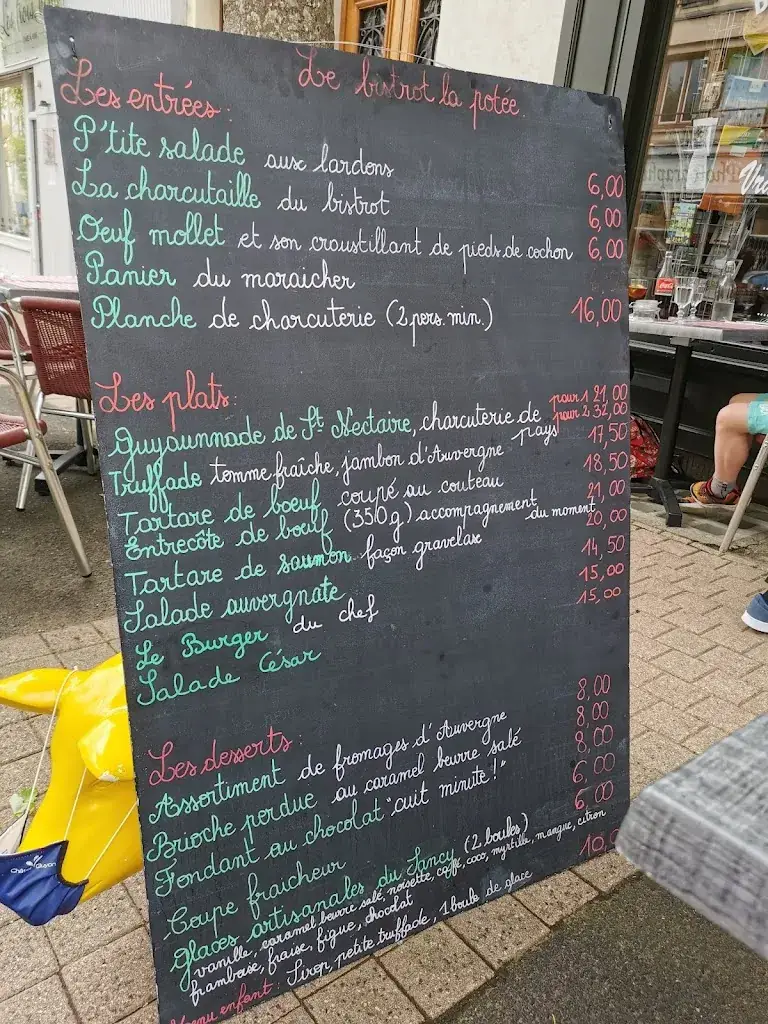 Le bistrot la potée
Les entrées:
P'tite salade aux lardons 6,00
La charcutaille du bistrot 6,00
Oeuf mollet et son croustillant de pieds de cochon 6,00
Panier du maraicher
Planche de charcuterie (2 pers. min.) 16,00
Les plats:
Guyounnade de St Nectaire, charcuterie de pays pour 1 21,00
pour 2 32,00
Truffade tomme fraîche, jambon d'Auvergne 17,50
Tartare de boeuf coupé au couteau 18,50
Entrecôte de boeuf (350g) accompagnement du moment 21,00
Tartare de saumon façon gravelax 20,00
Salade auvergnate 14,50
Le Burger du chef 15,00
Salade César 15,00
Les desserts:
Assortiment de fromages d'Auvergne 8,00
Brioche perdue au caramel beurre salé 8,00
Fondant au chocolat "cuit minute!" 8,00
Coupe fraicheur 6,00
Glaces artisanales du Sancy (2 boules) 6,00
vanille, caramel beurre salé, noisette, café, coco, myrtille, mangue, citron
framboise, fraise, figue, chocolat
Menu enfant: Sirop, petite truffade, 1 boule de glace 10,0